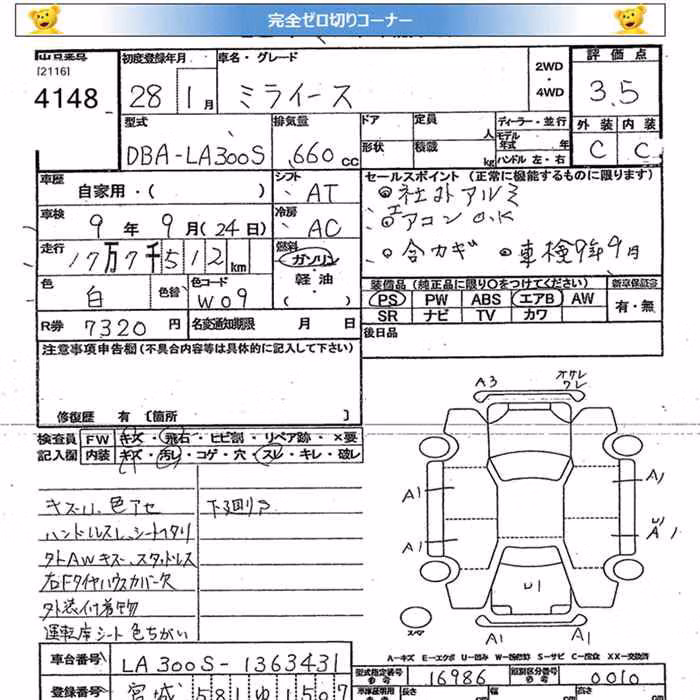 完全ゼロ切りコーナー
[2116]
4148
初度登録年月
28 1月
車名・グレード
ミライース
2WD
・
4WD
評価点
3.5
型式
DBA-LA300S
排気量
660cc
ドア
定員 人
ディーラー・並行
モデル年式 年
形状
積載 kg
ハンドル 左・右
外装 内装
C C
車歴
自家用・( )
シフト
AT
車検
9年9月(24日)
冷房
AC
走行
17万7千512km
燃料
ガソリン
軽油
( )
色
白
色替
色コード
W09
R券 7320円
名変通知期限 月 日
セールスポイント (正常に機能するものに限ります)
社外アルミ
エアコンO.K
合カギ
車検9年9月
装備品 (純正品に限り○をつけてください)
PS PW ABS エアB AW
SR ナビ TV カワ
新車保証書
有・無
後日品
注意事項申告欄 (不具合内容等は具体的に記入して下さい)
修復歴 有 〔箇所 〕
検査員記入欄
FW キズ・飛石・ヒビ割・リペア跡・×要
内装 キズ・汚レ・コゲ・穴・スレ・キレ・破レ
キズ凹、色アセ
下回りサ
ハンドルスレ、シートヘタリ
外AWキズ、スタッドレス
右Fタイヤハウスカバー欠
外装付着物
運転席シート色ちがい
A3
A1
A1
A1
U1
A1
A1
A1
スペア
A-キズ E-エクボ U-凹み W-波修理 S-サビ C-腐食 XX-交換済
車台番号
LA300S-1363431
登録番号
宮城 581
型式指定番号
16986
類別区分番号
0010
長さ
幅
高さ